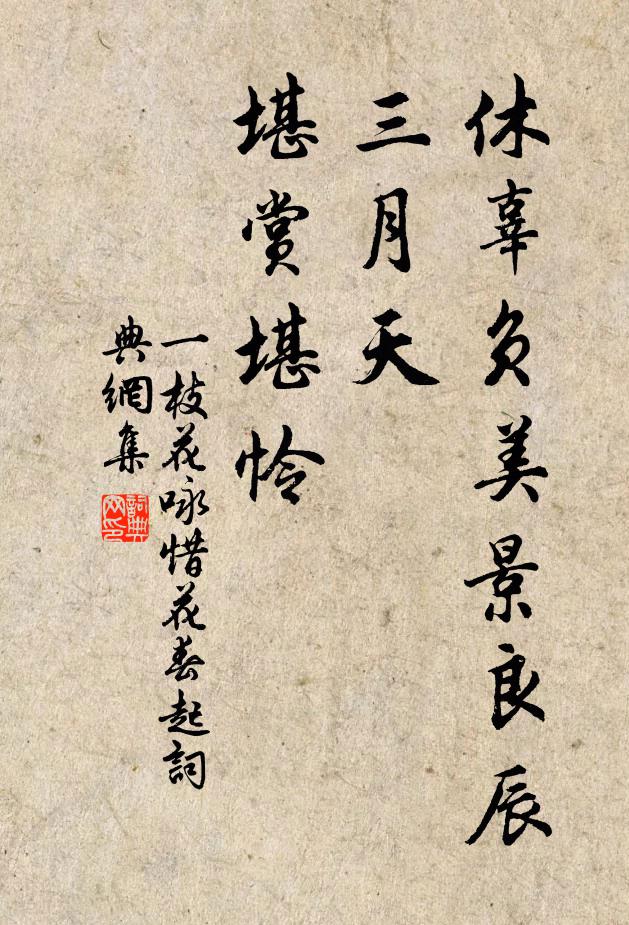 休辜负美景良辰
三月天
堪赏堪怜
一枝花咏惜花春起詞
典網集
詞典网印